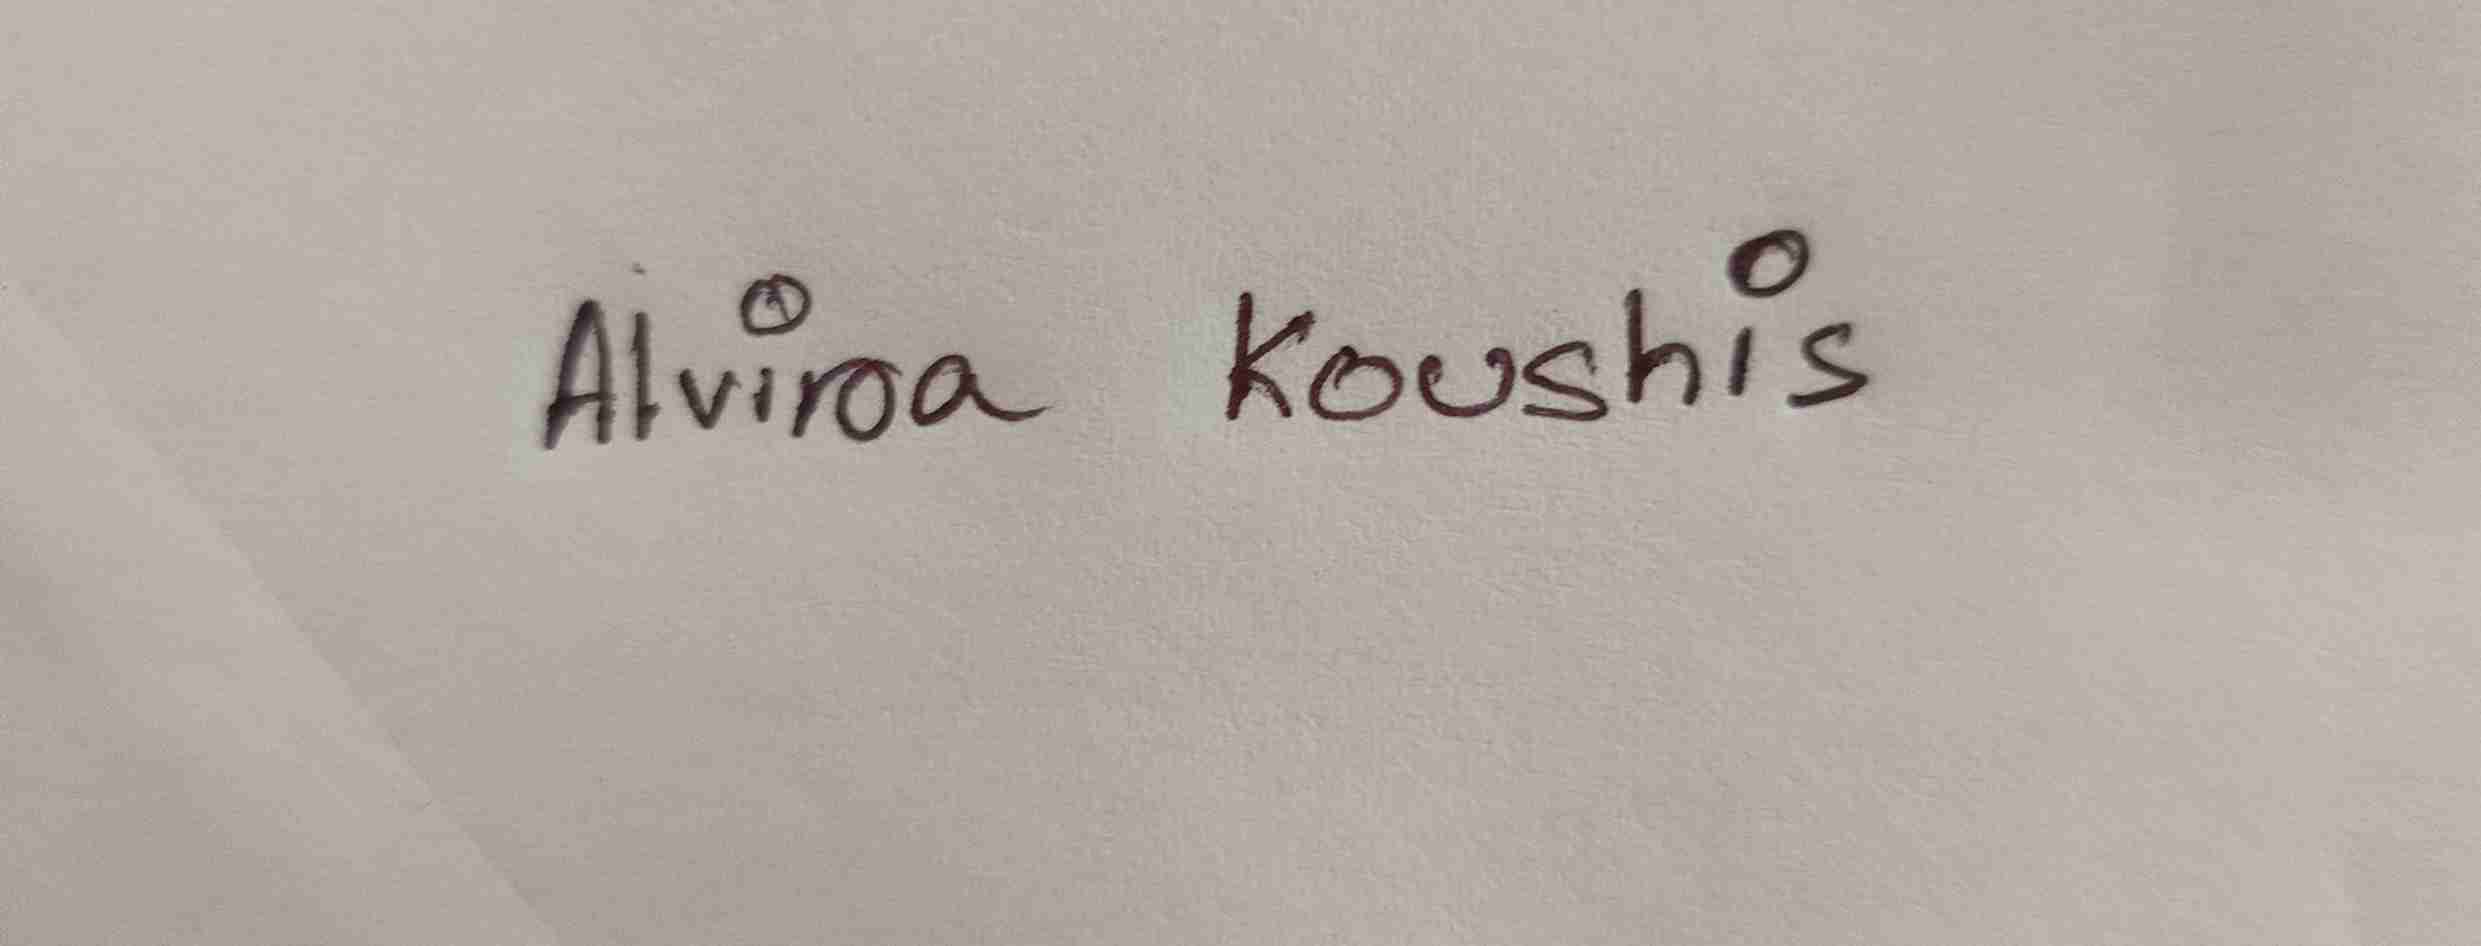 Alviroa Koushis